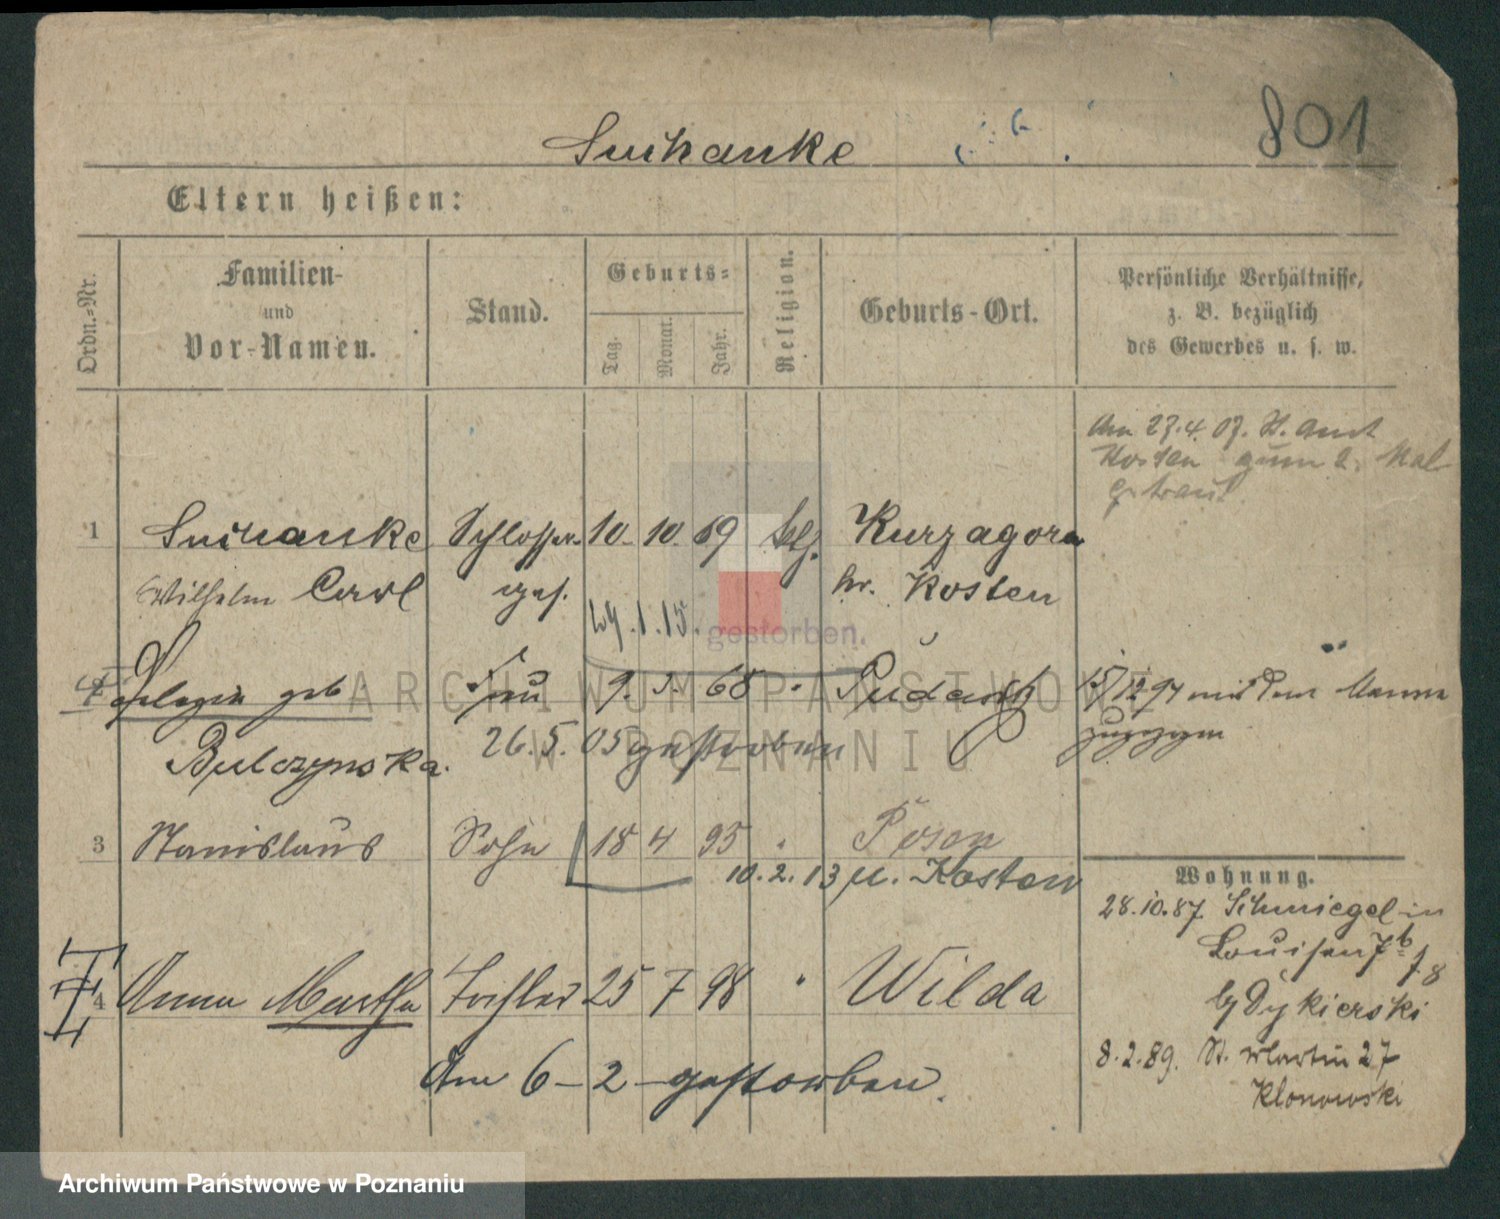 801
Suchanke
Eltern heißen:
Ordn.-Nr.
Familien-
und
Vor-Namen.
Stand.
Geburts-
Tag.
Monat.
Jahr.
Religion.
Geburts-Ort.
Persönliche Verhältnisse,
z. B. bezüglich
des Gewerbes u. s. w.
Am 27.4.07. St. Amt
Kosten zum 2. Mal
getraut
1 Schlosser 10. 10. 69 Kurzagora
Wilhelm Carl ges. kr. Kosten
29.1.15. gestorben.
Pelagia geb Frau 9. 68 " Pudewitz 15/12 97 mit dem Manne
Bulczynska. 26. 5. 05 gestorben zugezogen
3 Stanislaus Sohn 18 4 95 " Posen
10.2.13 u. Kosten
Wohnung.
28.10.87. Schmiegel in
Louisen 7b
Dykierski
4 Anna Martha Tochter 25 7 98 " Wilda
8.2.89. St. Martin 27
Klonowski
Am 6-2- gestorben.
ARCHIWUM PAŃSTWOWE
W POZNANIU
Archiwum Państwowe w Poznaniu